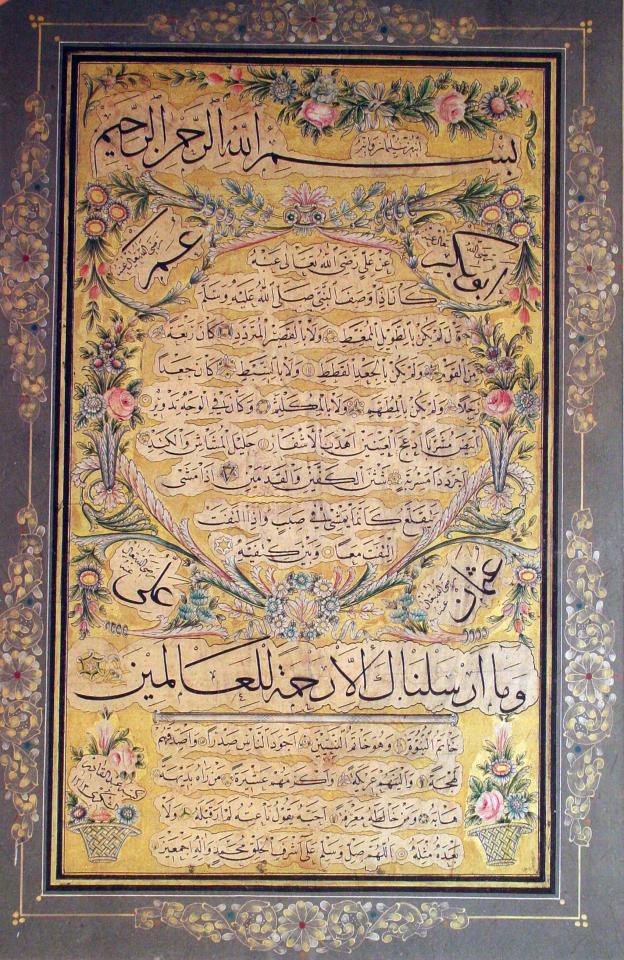 بسم الله الرحمن الرحيم
ابو بكر
رضي الله تعالى عنه
عمر
رضي الله تعالى عنه
عن علي رضي الله تعالى عنه
كان اذا وصف النبي صلى الله عليه وسلم
قال لم يكن بالطويل الممغط ولا بالقصير المتردد كان ربعة
من القوم ولم يكن بالجعد القطط ولا بالسبط كان جعدا
رجلا ولم يكن بالمطهم ولا بالمكلثم وكان في الوجه تدوير
ابيض مشربا ادعج العينين اهدب الاشفار جليل المشاش والكتد
اجرد ذا مسربة شثن الكفين والقدمين اذا مشى
يتقلع كانما يمشي في صبب واذا التفت
التفت معا وبين كتفيه
عثمان
رضي الله تعالى عنه
علي
رضي الله تعالى عنه
وما ارسلناك الا رحمة للعالمين
خاتم النبوة وهو خاتم النبيين اجود الناس صدرا واصدقهم
لهجة والينهم عريكة واكرمهم عشيرة من رآه بديهة
هابه ومن خالطه معرفة احبه يقول ناعته لم ار قبله ولا
بعده مثله اللهم صل وسلم على اشرف الخلق محمد واله اجمعين